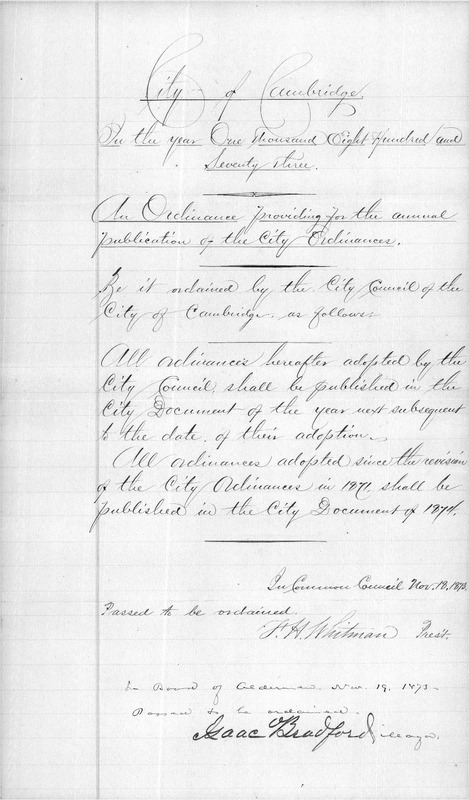 City of Cambridge.
In the year One thousand Eight Hundred and
Seventy three.
An Ordinance providing for the annual
publication of the City Ordinances.
Be it ordained by the City Council of the
City of Cambridge, as follows:
All ordinances hereafter adopted by the
City Council, shall be published in the
City Document of the year next subsequent
to the date of their adoption.
All ordinances adopted since the revision
of the City Ordinances in 1871, shall be
published in the City Document of 1874.
In Common Council Nov. 1873.
Passed to be ordained.
F. H. Whitman Prest.
In Board of Aldermen. Nov. 19, 1873.
Passed to be ordained.
Isaac Bradford Mayor.